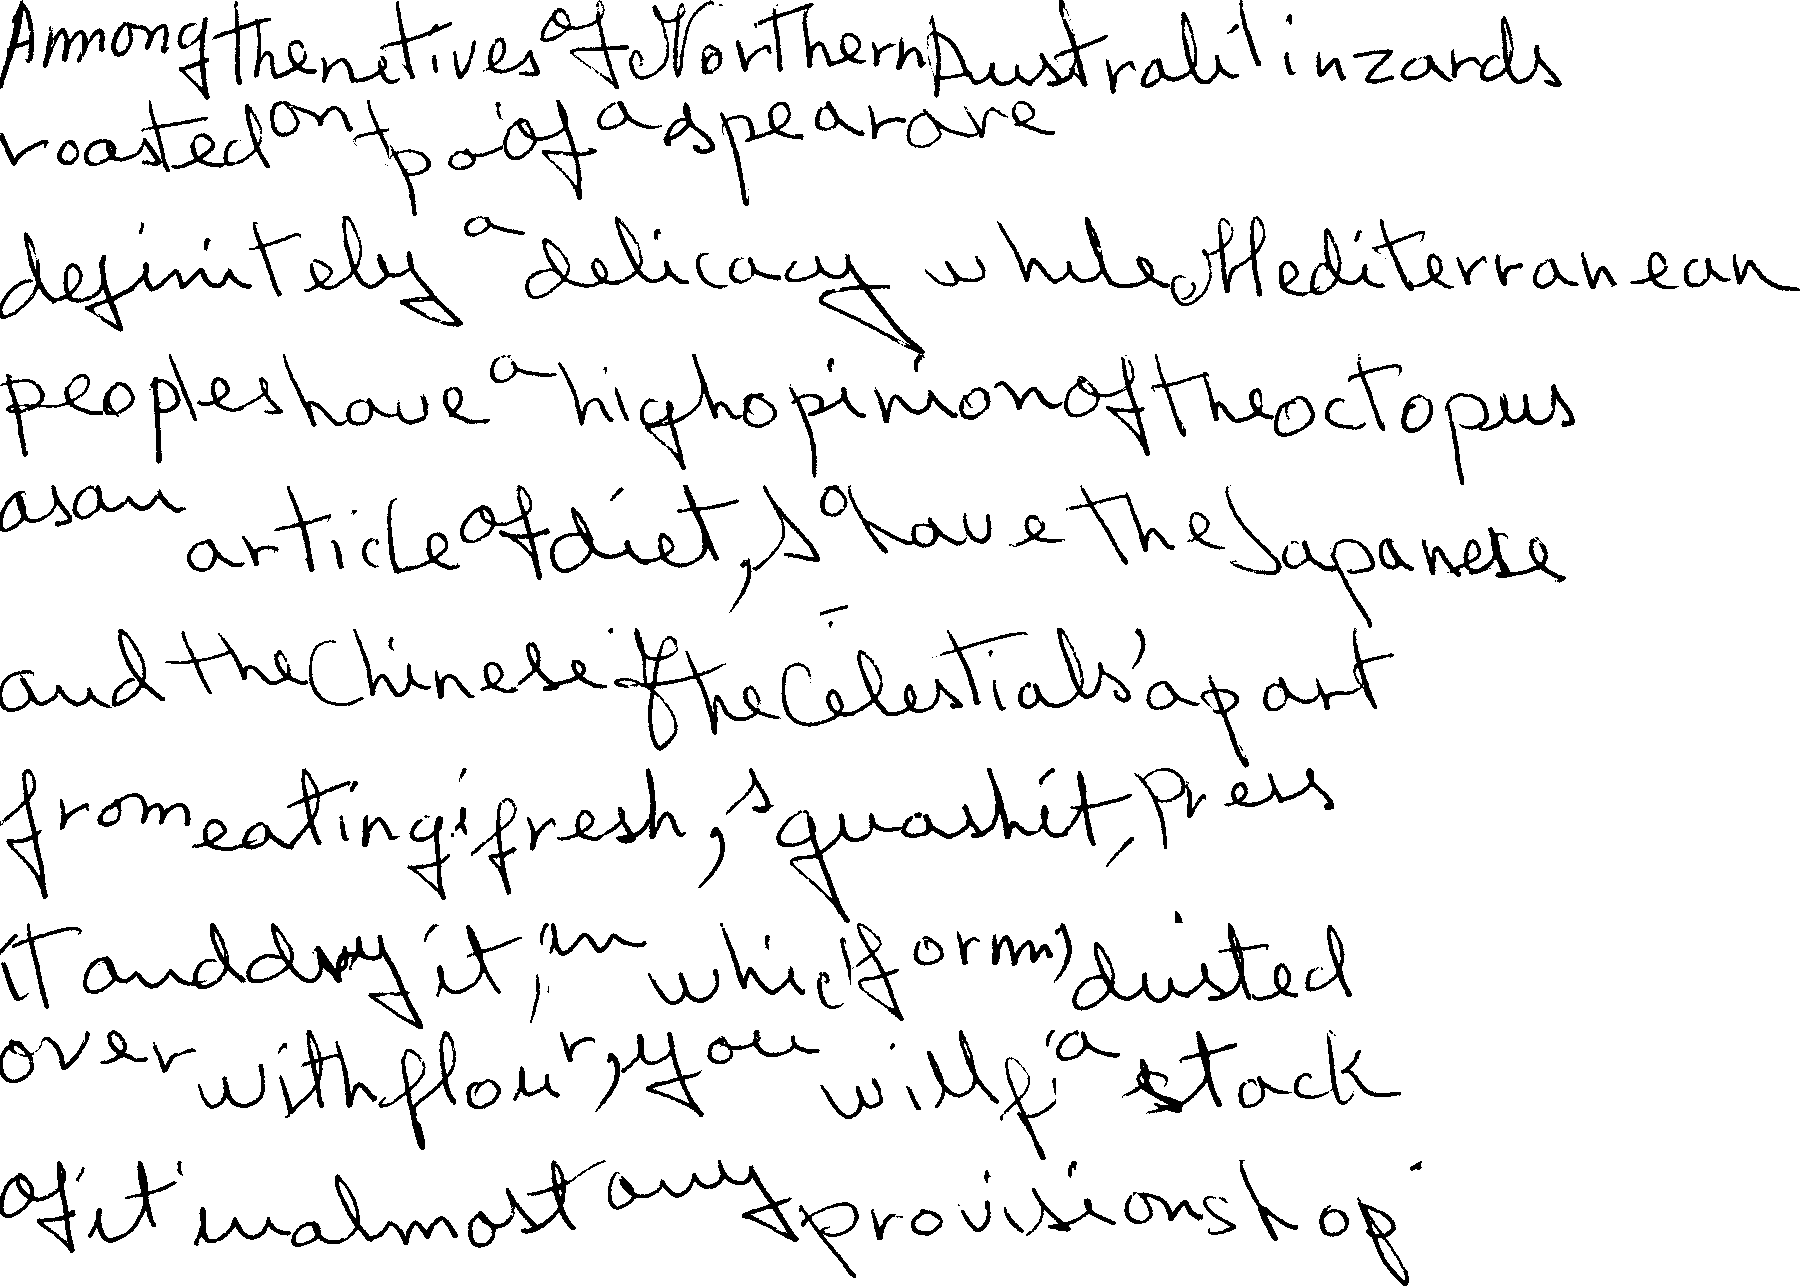 Among the netives of Northern Australi inzards
roasted on to po of a spear are
definitely a delicacy while Mediterranean
peoples have a high opinion of the octopus
as an article of diet, so have the Japanese
and the Chinese if the Celestials' apart
from eating i fresh, squash it, press
it and dry it, in whic form, dusted
over with flour, you will fi a stack
of it in almost any provision shop.